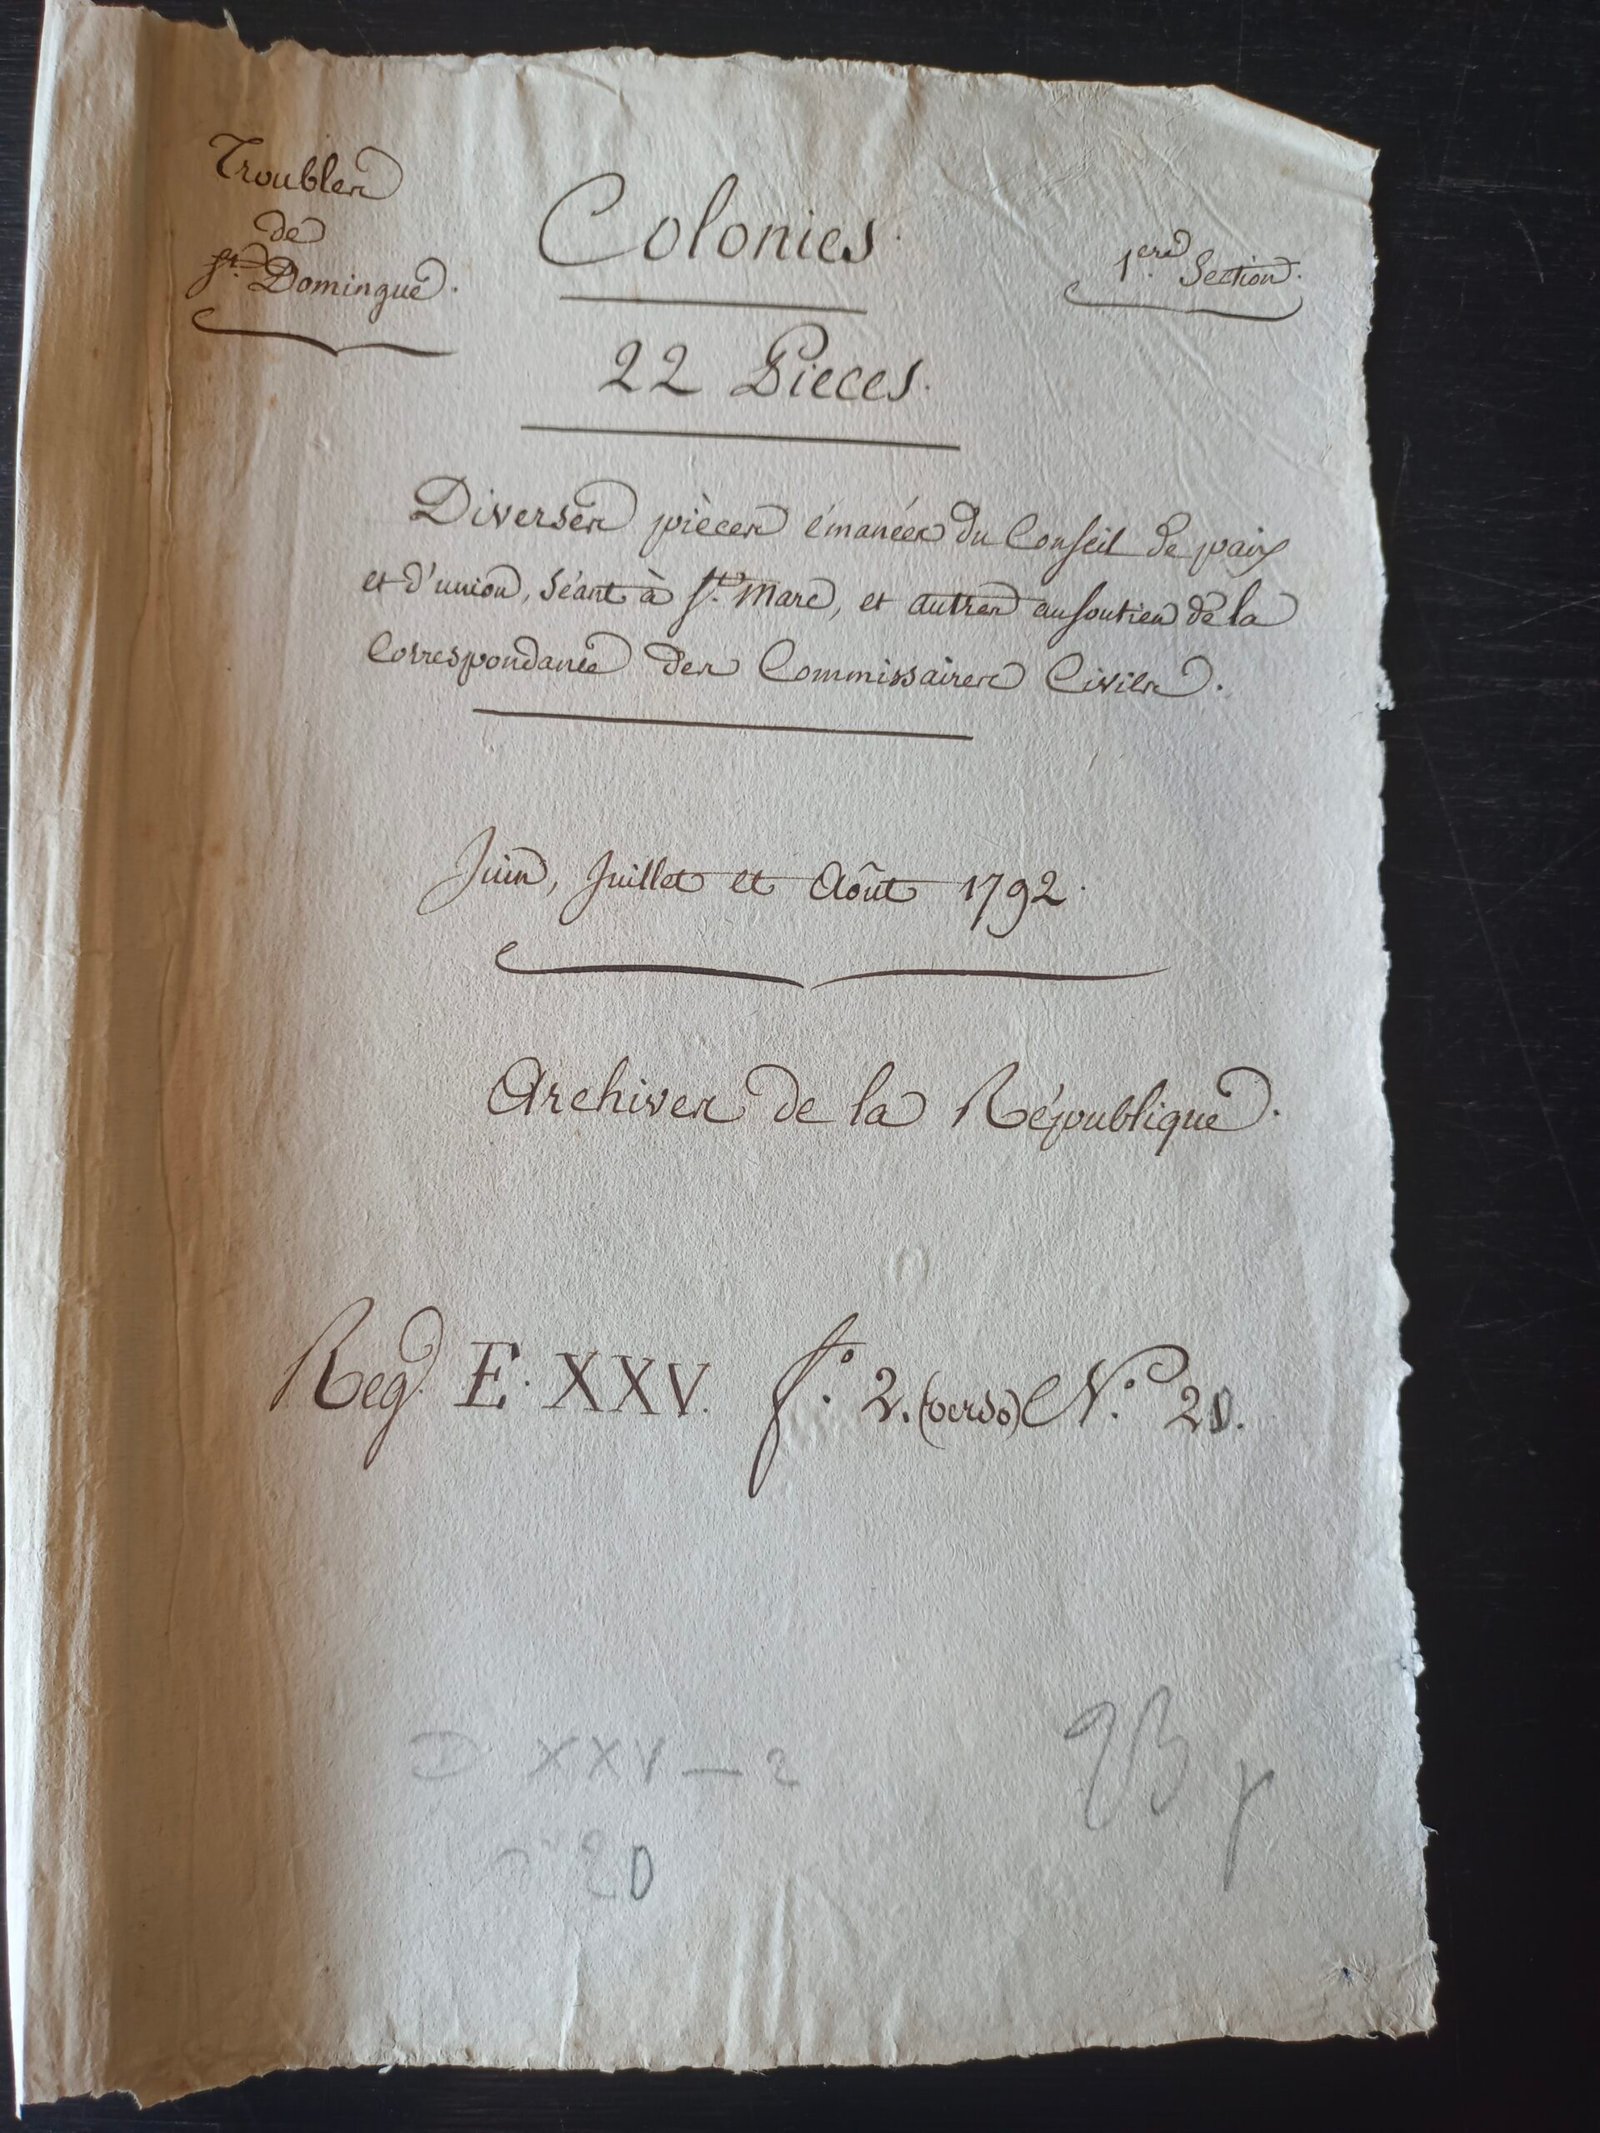 Troubles
de
St. Domingue.
Colonies.
1ere. Section.
22 Pieces.
Diverses pièces émanées du Conseil de paix
et d'union, séant à St. Marc, et autres au soutien de la
Correspondance des Commissaires Civils.
Juin, Juillet et Aôut 1792.
Archives de la République.
Reg. E. XXV. fo. 2. (verso) No. 20.
D XXV — 2
no 20